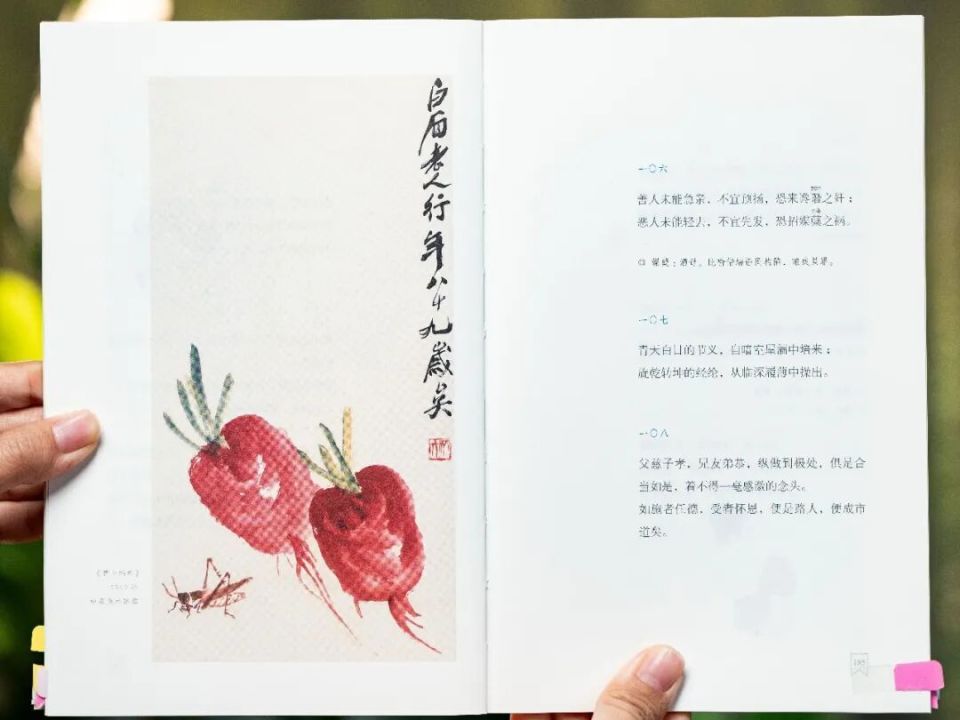 白石老人行年八十九岁矣
一〇六
善人未能急亲，不宜预扬，恐来谗谮之奸；
恶人未能轻去，不宜先发，恐招媒蘖之祸。
一〇七
青天白日的节义，自暗室屋漏中培来；
旋乾转坤的经纶，从临深履薄中操出。
一〇八
父慈子孝，兄友弟恭，纵做到极处，俱是合
当如是，着不得一毫感激的念头。
如施者任德，受者怀恩，便是路人，便成市
道矣。